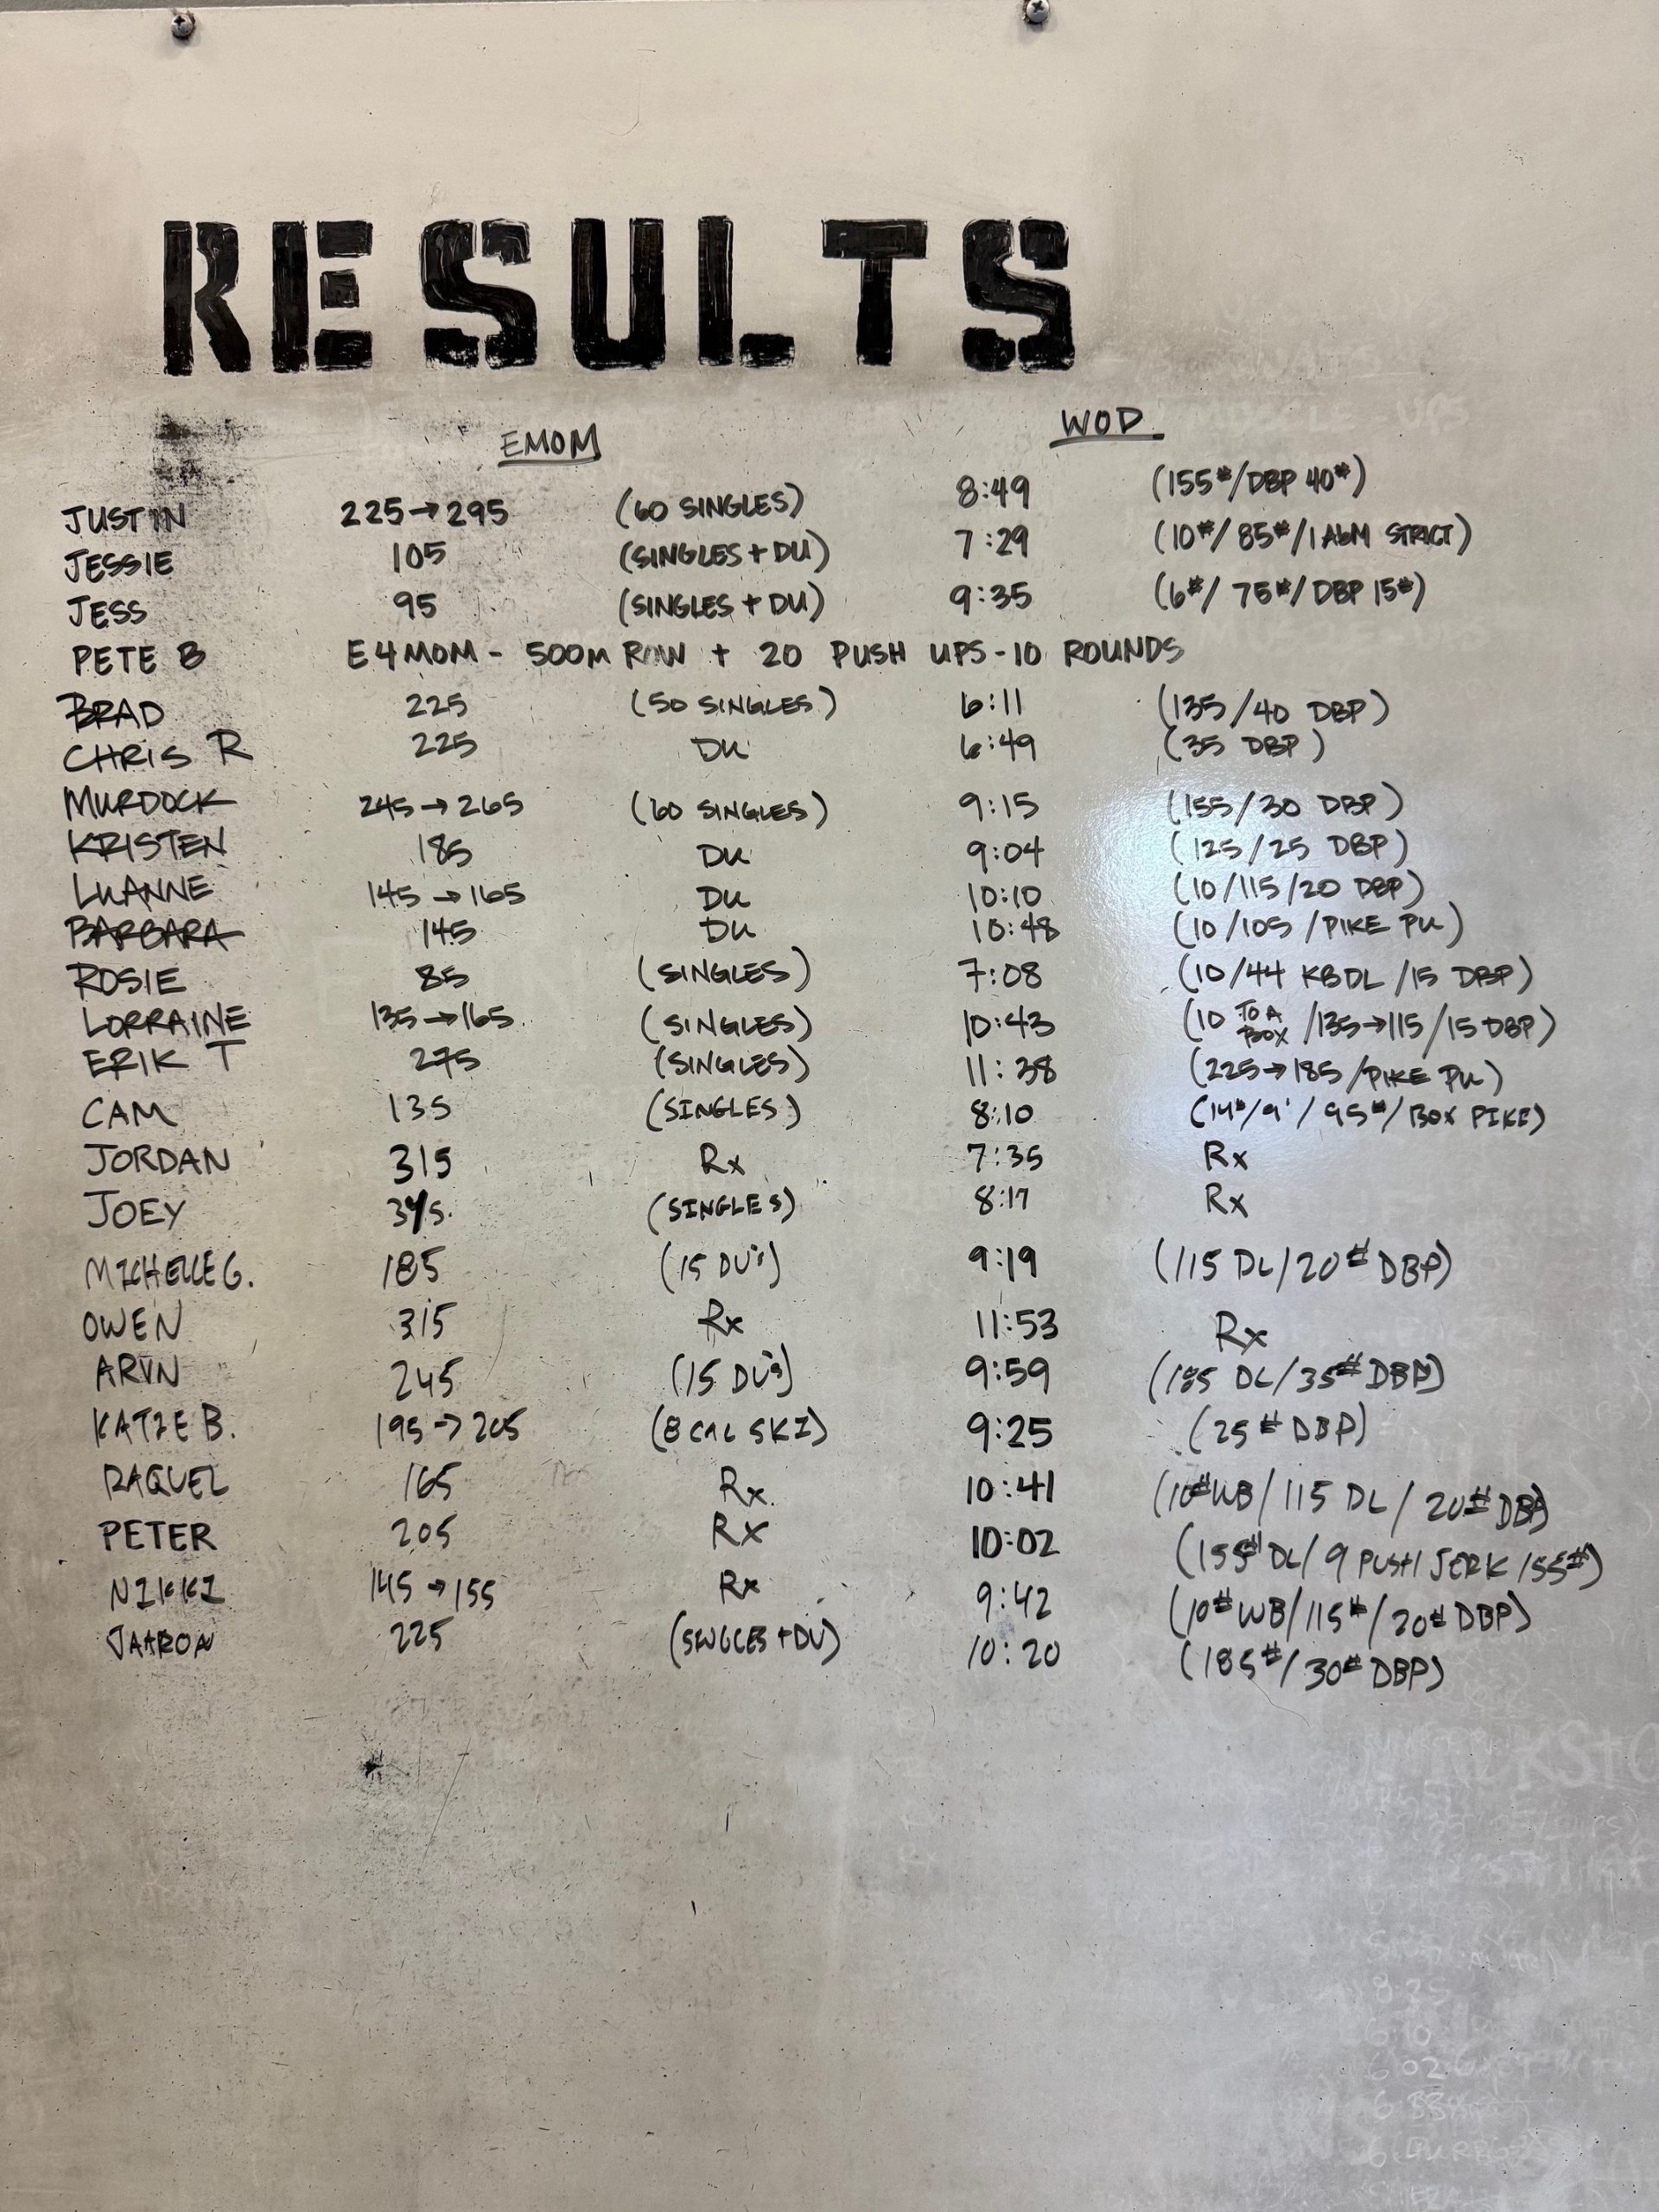 RESULTS
EMOM WOD
JUSTIN 225→295 (60 SINGLES) 8:49 (155#/DBP 40#)
JESSIE 105 (SINGLES + DU) 7:29 (10#/85#/1 AbM STRICT)
JESS 95 (SINGLES + DU) 9:35 (6#/75#/DBP 15#)
PETE B E4MOM - 500M ROW + 20 PUSH UPS - 10 ROUNDS
BRAD 225 (50 SINGLES) 6:11 (135/40 DBP)
CHRIS R 225 DU 6:49 (35 DBP)
MURDOCK 245→265 (60 SINGLES) 9:15 (155/30 DBP)
KRISTEN 185 DU 9:04 (125/25 DBP)
LUANNE 145→165 DU 10:10 (10/115/20 DBP)
BARBARA 145 DU 10:48 (10/105/PIKE PU)
ROSIE 85 (SINGLES) 7:08 (10/44 KBDL/15 DBP)
LORRAINE 135→165 (SINGLES) 10:43 (10 TO A BOX/135→115/15 DBP)
ERIK T 275 (SINGLES) 11:38 (225→185/PIKE PU)
CAM 135 (SINGLES) 8:10 (14#/9'/95#/BOX PIKE)
JORDAN 315 Rx 7:35 Rx
JOEY (SINGLES) 8:17 Rx
MICHELLE G. 185 (15 DU's) 9:19 (115 DL/20# DBP)
OWEN 315 Rx 11:53 Rx
ARVN 245 (15 DU's) 9:59 (185 DL/35# DBP)
KATIE B. 195→205 (8 CAL SKI) 9:25 (25# DBP)
RAQUEL 165 Rx 10:41 (10# WB/115 DL/20# DBP)
PETER 205 Rx 10:02 (155# DL/9 PUSH JERK 155#)
NIKKI 145→155 Rx 9:42 (10# WB/115#/20# DBP)
JAARON 225 (SINGLES + DU) 10:20 (185#/30# DBP)